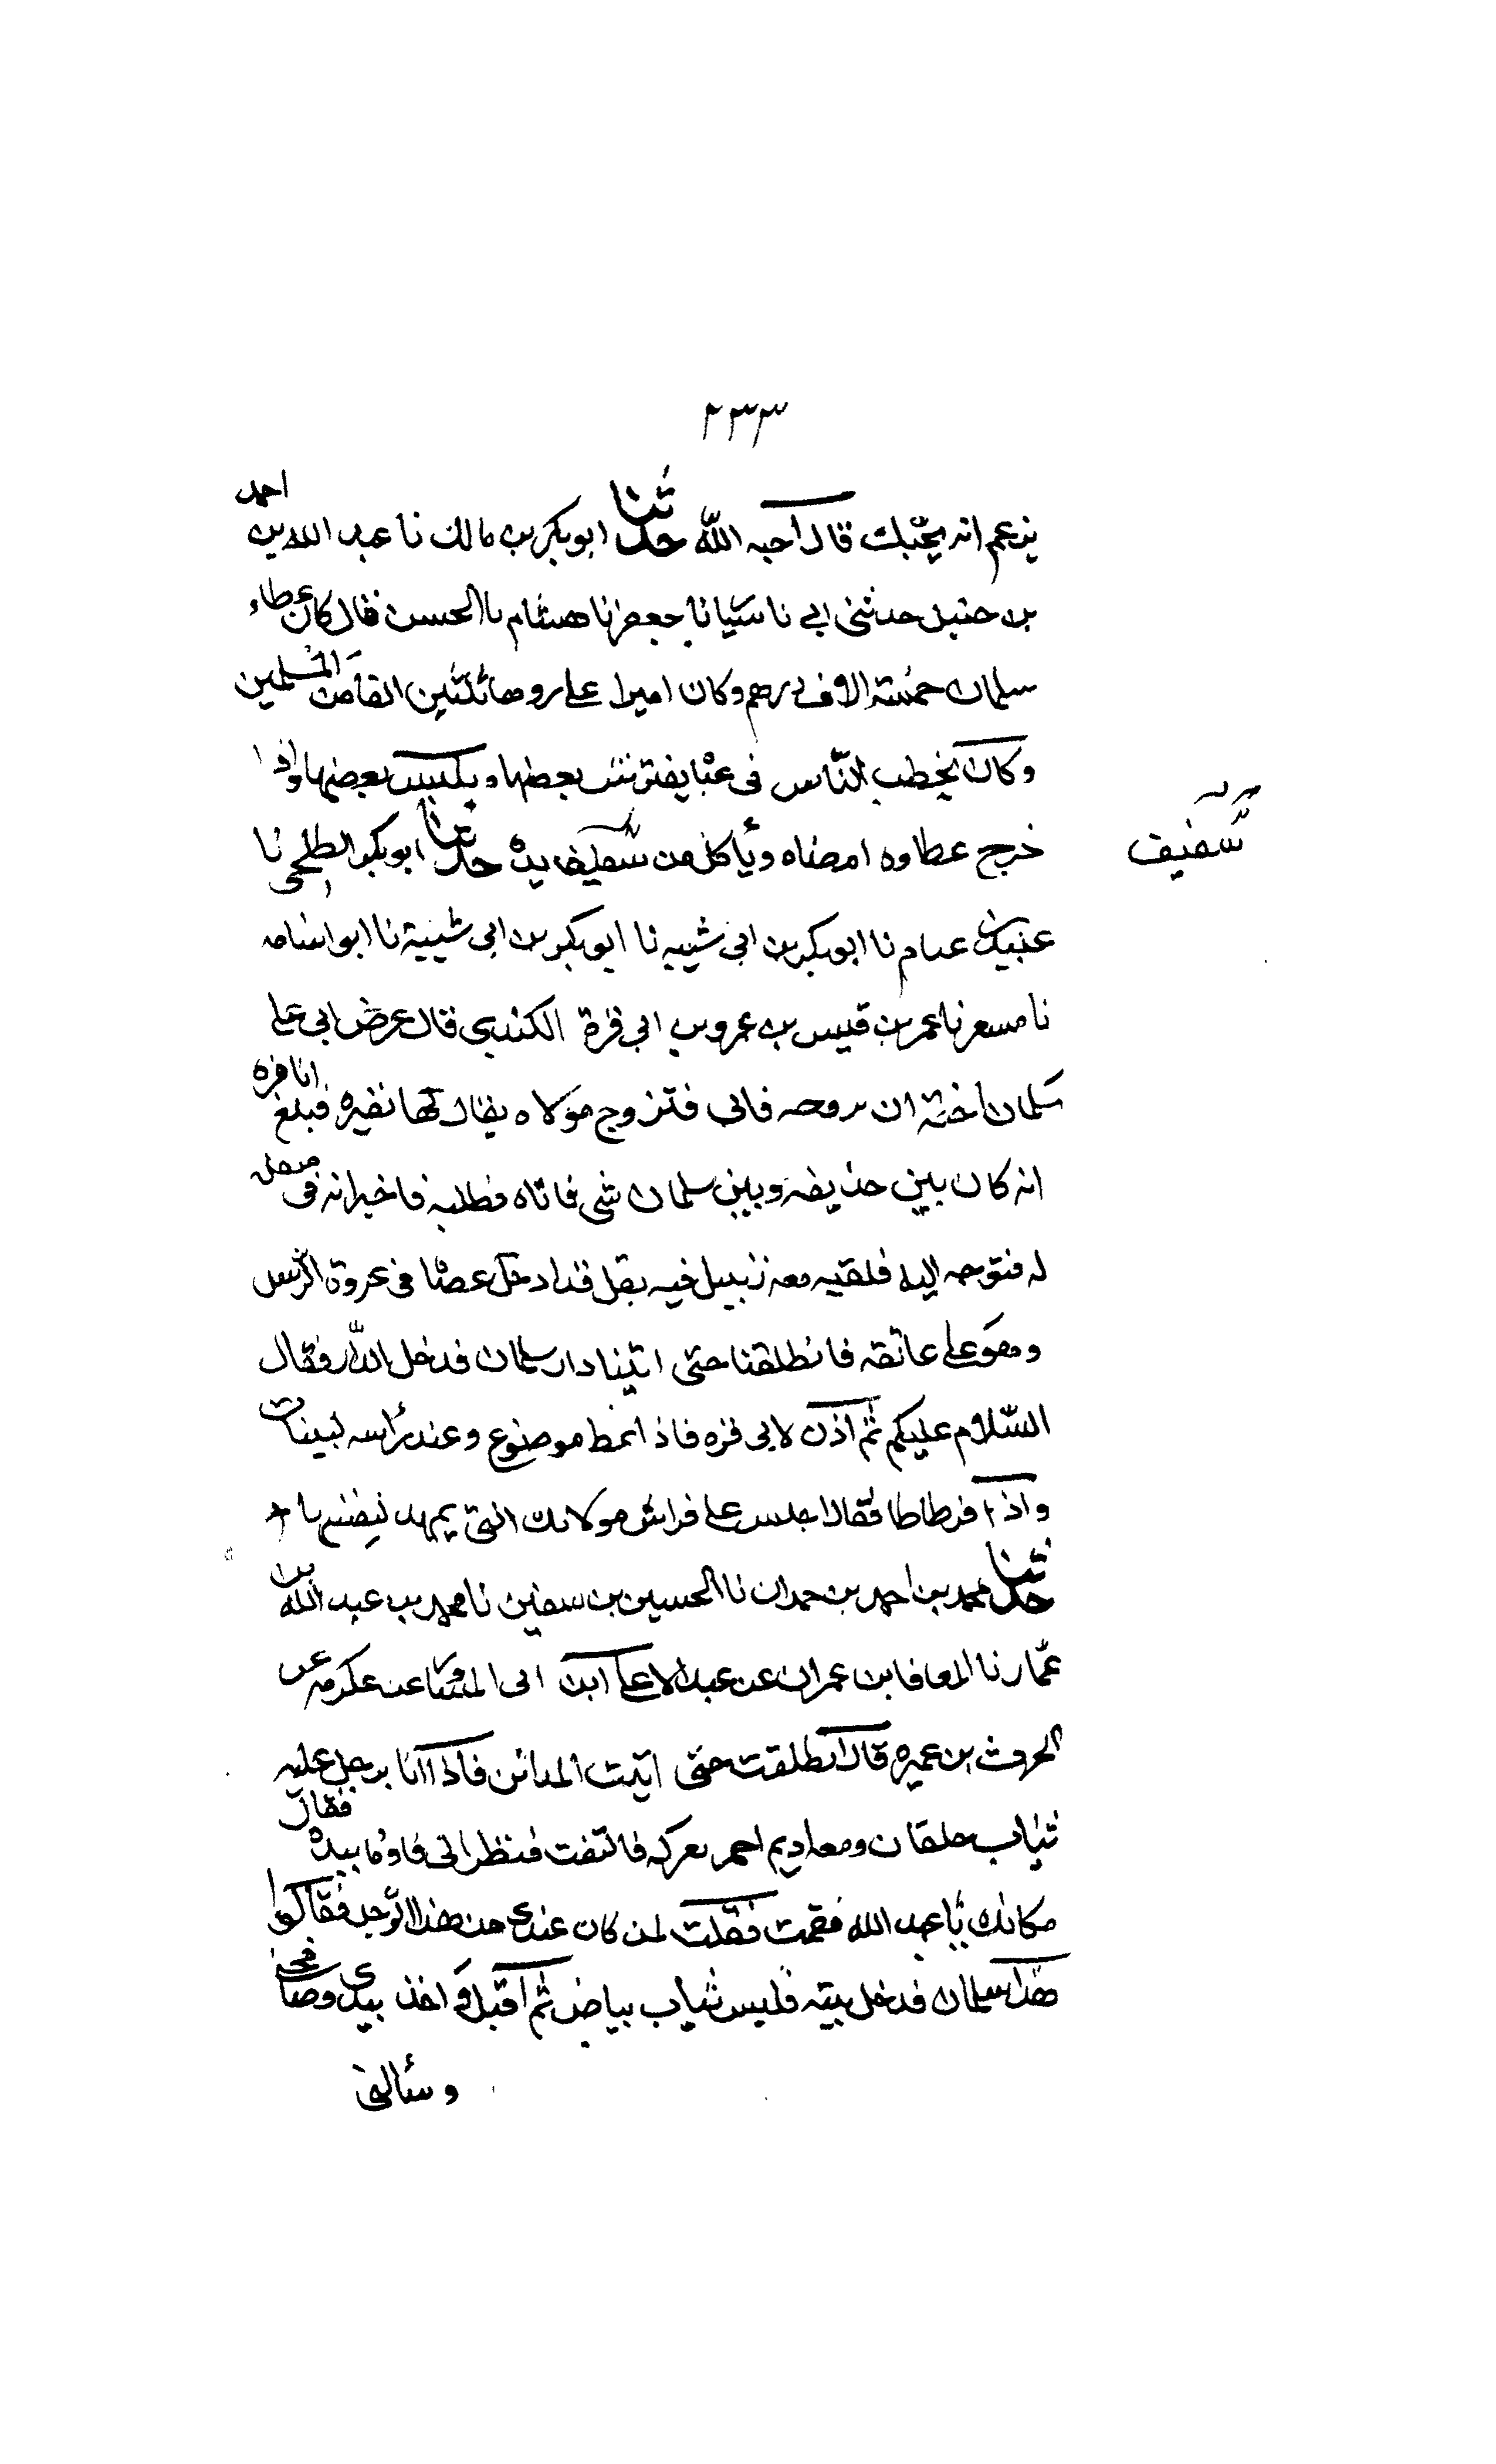 ٢٣٣
يزعم انه يحبك قال احبه الله حدثنا ابو بكر بن مالك نا عبد الله بن احمد
بن حنبل حدثني ابي نا سيار نا جعفر نا هشام نا الحسن قال كان عطاء
سلمان خمسة الاف درهم وكان اميرا على زهاء ثلثين الفا من المسلمين
وكان يخطب الناس في عبا يفترش بعضها ويلبس بعضها واذا
خرج عطاوه امضاه ويأكل من سفيف يده حدثنا ابو بكر الطلحي نا
سفيف
عبيد بن غنام نا ابو بكر بن ابي شيبه نا ابو بكر بن ابي شيبة نا ابو اسامه
نا مسعر نا عمر بن قيس بن عمرو بن ابي قرة الكندي قال عرض ابي على
سلمان اخته ان يزوجه فابى فتزوج مولاه يقال لها بقيره فبلغ ابا قره
انه كان بين حذيفه وبين سلمان شي فاتاه فطلبه فاخبر انه في مبقله
له فتوجه اليه فلقيه معه زنبيل فيه بقل قد ادخل عصاه في عروة الزنبيل
وهو على عاتقه فانطلقنا حتى اتينا دار سلمان فدخل الدار فقال
السلام عليكم ثم اذن لابي قره فاذا نمط موضوع وعند رأسه لبينات
واذا قرطاطا فقال اجلس على فراش مولاتك التي تمهد لنفسها
حدثنا محمد بن احمد بن حمدان نا الحسين بن سفين نا محمد بن عبد الله بن
عمار نا المعافا بن عمران عن عبد الاعلى ابن ابي المساور عن عكرمه عن
الحرث بن عميره قال انطلقت حتى اتيت المدائن فاذا انا برجل عليه
ثياب خلقان ومعه اديم احمر يعركه فالتفت فنظر الي فاوما بيده فقال
مكانك يا عبد الله فقمت فقلت لمن كان عندي من هذا الرجل فقالوا
هذا سلمان فدخل بيته فلبس ثياب بياض ثم اقبل واخذ بيدي وصافحني
وسألني